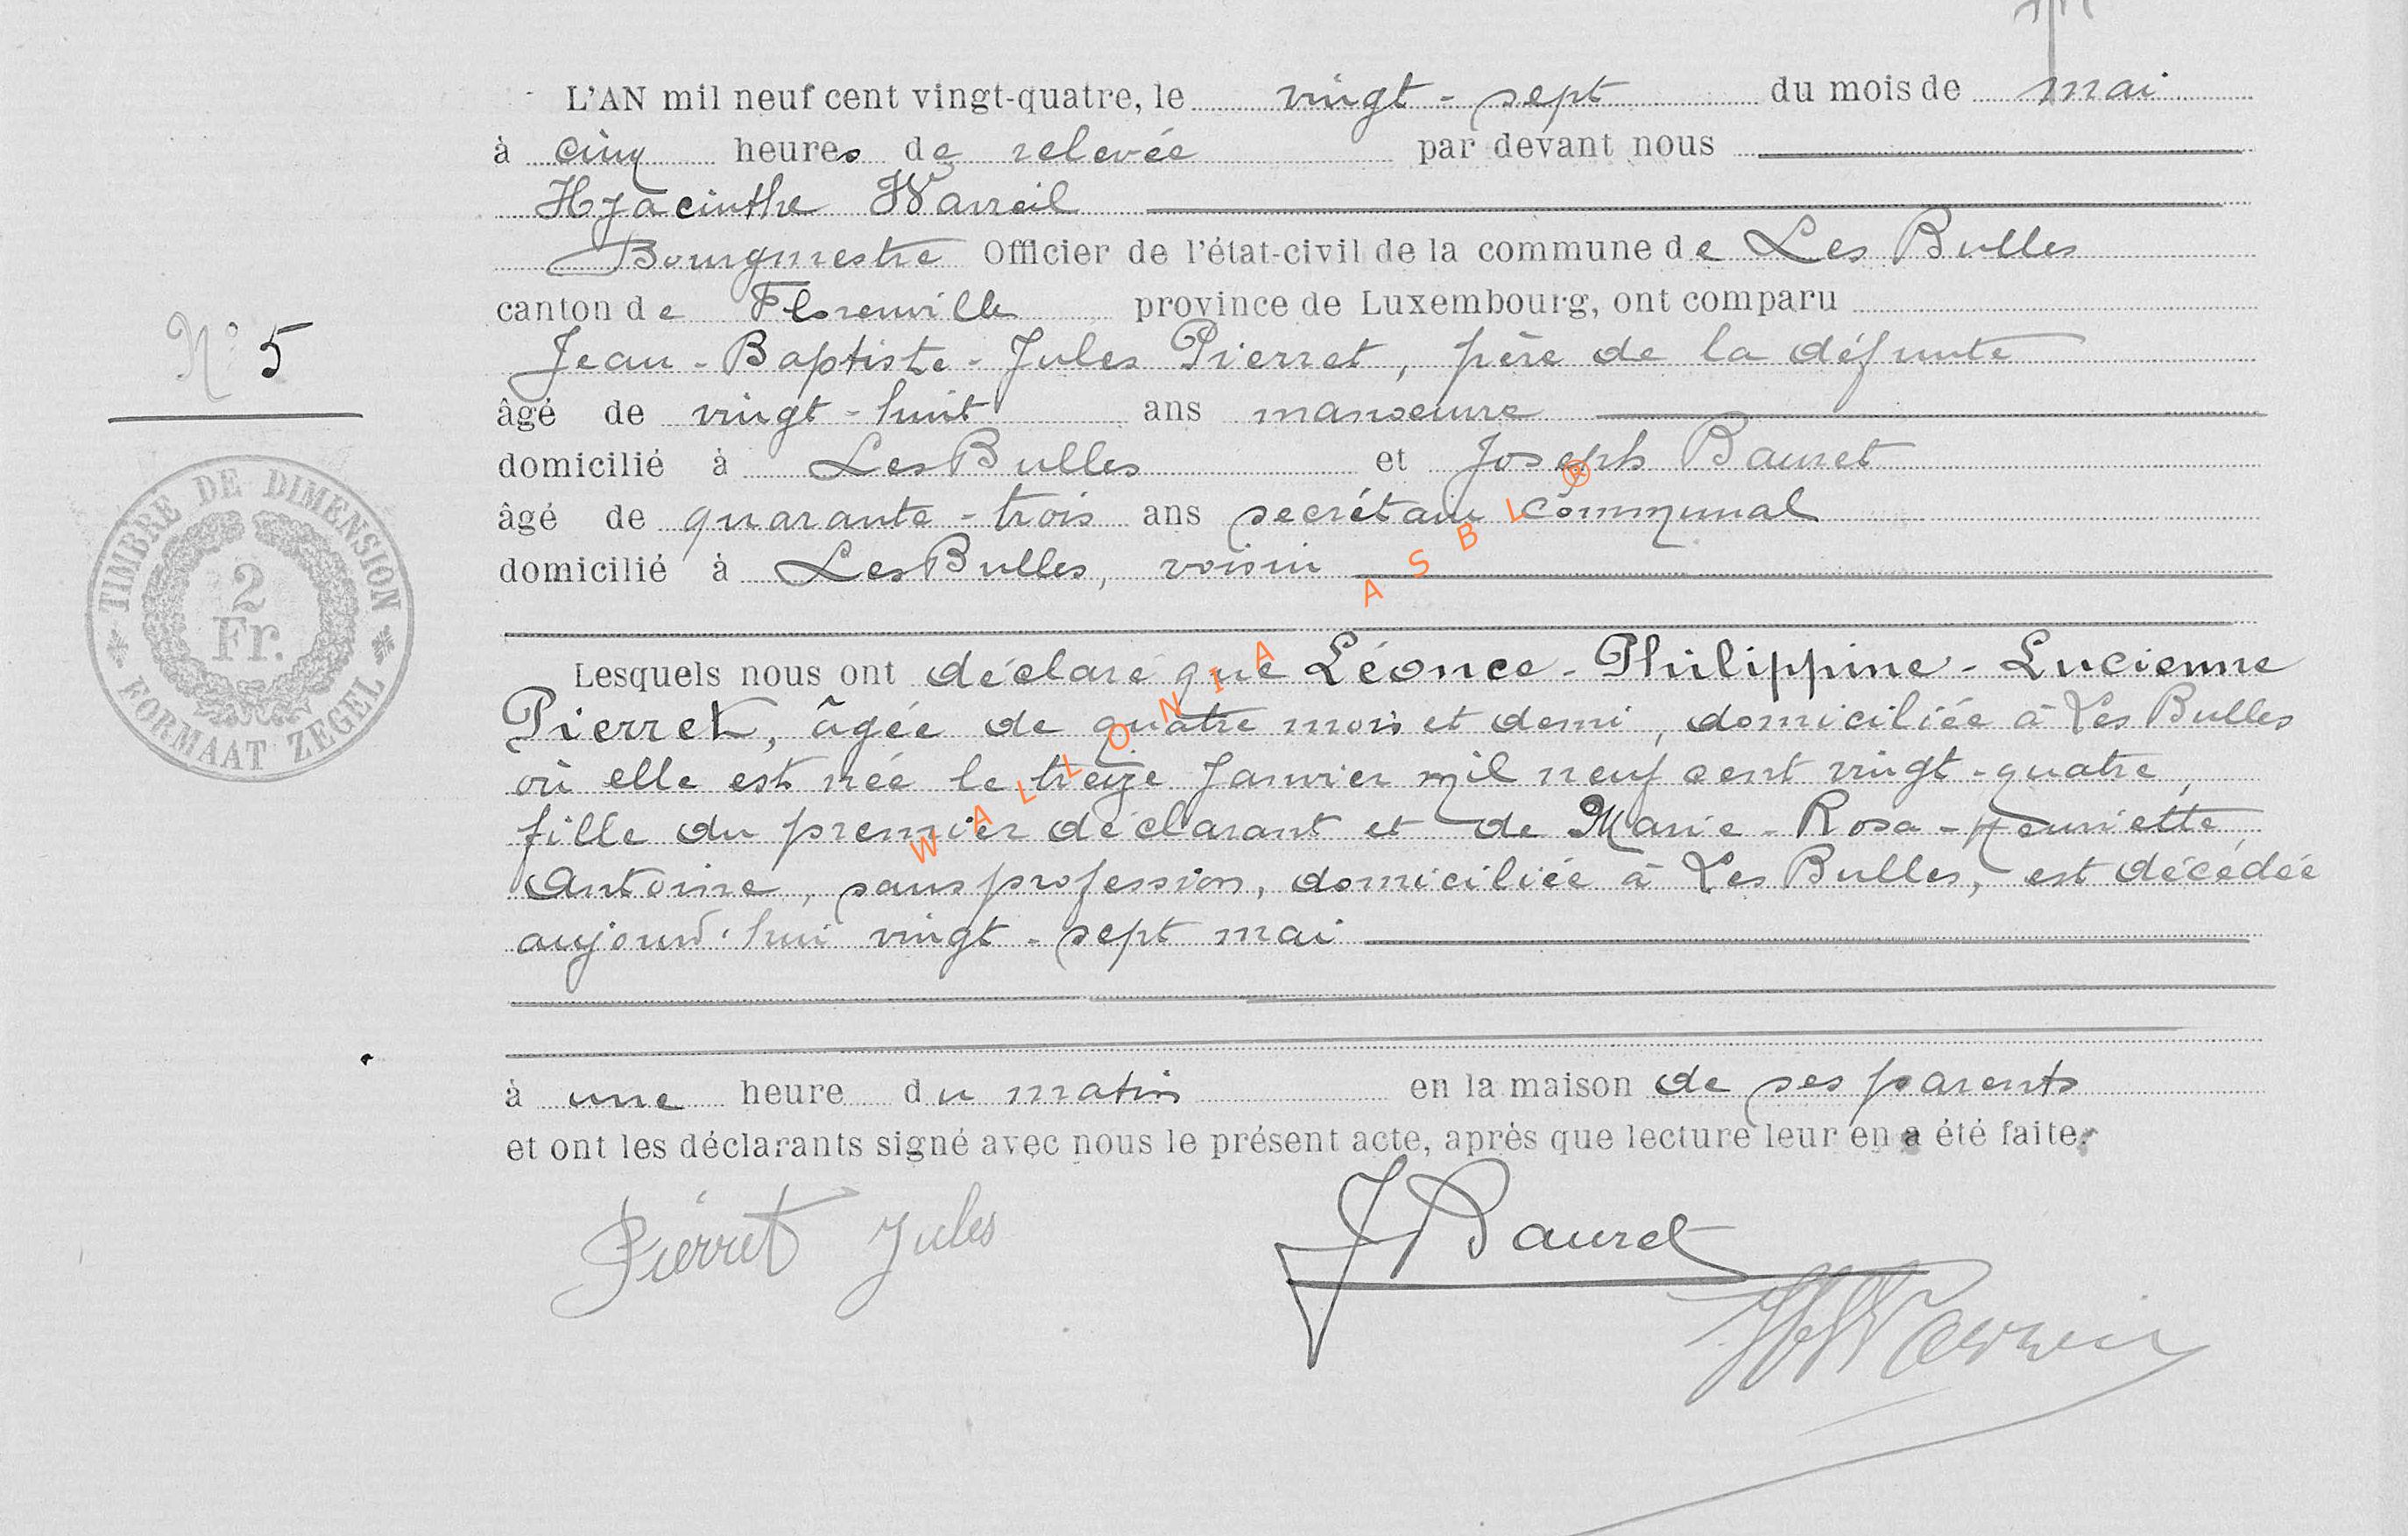 L'AN mil neuf cent vingt-quatre, le vingt-sept du mois de mai
à cinq heures de relevée par devant nous
Hyacinthe Warreil
Bourgmestre Officier de l'état-civil de la commune de Les Bulles
canton de Florenville province de Luxembourg, ont comparu
N° 5
Jean-Baptiste-Jules Pierret, père de la défunte
âgé de vingt-huit ans manoeuvre
domicilié à Les Bulles et Joseph Bauret
âgé de quarante-trois ans secrétaire communal
domicilié à Les Bulles, voisin
TIMBRE DE DIMENSION
2
Fr.
FORMAAT ZEGEL
WALLONIA ASBL ®
Lesquels nous ont déclaré que Léonce-Philippine-Lucienne
Pierret, âgée de quatre mois et demi, domiciliée à Les Bulles
où elle est née le treize Janvier mil neuf cent vingt-quatre,
fille du premier déclarant et de Marie-Rosa-Henriette
Antoine, sans profession, domiciliée à Les Bulles, est décédée
aujourd'hui vingt-sept mai
à une heure du matin en la maison de ses parents
et ont les déclarants signé avec nous le présent acte, après que lecture leur en a été faite.
Pierret Jules
J Bauret